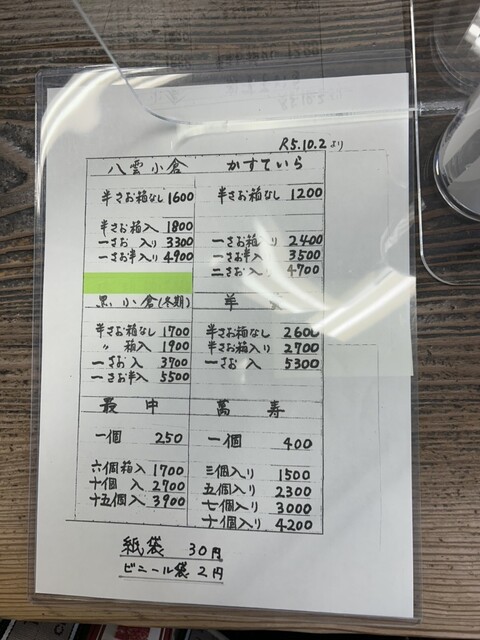 R5.10.2より
八雲小倉
半さお箱なし 1600
半さお箱入 1800
一さお 入り 3300
一さお半入り 4900
かすていら
半さお箱なし 1200
一さお箱入り 2400
一さお半入 3500
二さお入り 4700
黒小倉(冬期)
半さお箱なし 1700
〃 箱入 1900
一さお入 3700
一さお半入 5500
羊
半さお箱なし 2600
半さお箱入り 2700
一さお 入 5300
最中
一個 250
六個箱入 1700
十個 入 2700
十五個入 3900
萬寿
一個 400
三個入り 1500
五個入り 2300
七個入り 3000
十個入り 4200
紙袋 30円
ビニール袋 2円